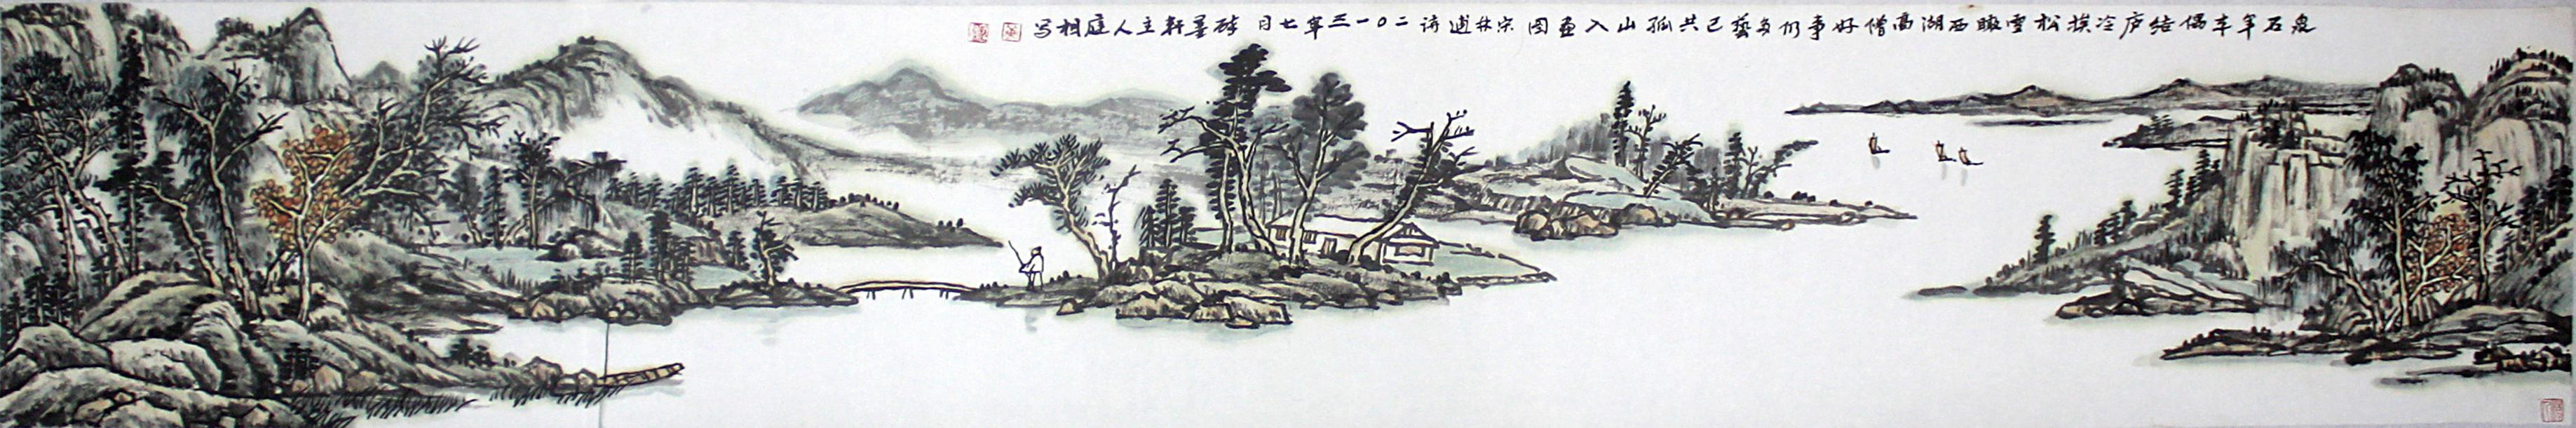 泉石年年偶结庐冷挨松雪瞰西湖高僧好事仍多藝已共孤山入画图 宋林逋诗 二〇一三年七月 墨轩主人庭相写